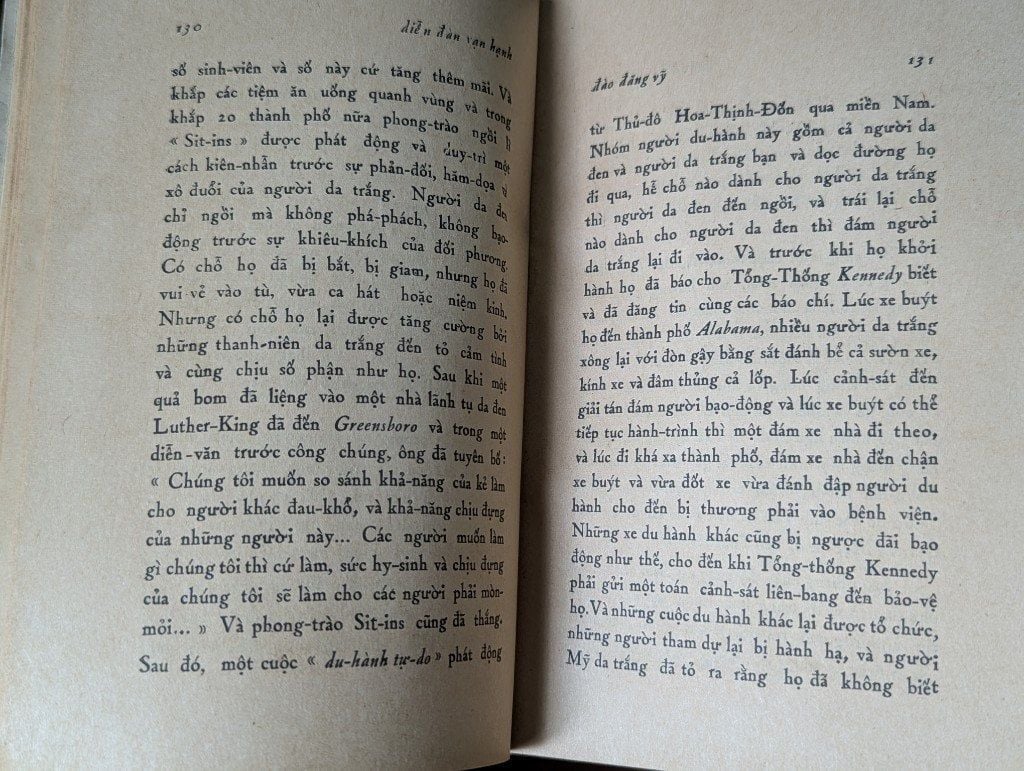 130
diễn đàn vạn hạnh
số sinh-viên và số này cứ tăng thêm mãi. Và
khắp các tiệm ăn uống quanh vùng và trong
khắp 20 thành phố nữa phong-trào ngồi lì
« Sit-ins » được phát động và duy-trì một
cách kiên-nhẫn trước sự phản-đối, hăm-dọa và
xô đuổi của người da trắng. Người da đen
chỉ ngồi mà không phá-phách, không bạo-
động trước sự khiêu-khích của đối phương.
Có chỗ họ đã bị bắt, bị giam, nhưng họ đã
vui vẻ vào tù, vừa ca hát hoặc niệm kinh.
Nhưng có chỗ họ lại được tăng cường bởi
những thanh-niên da trắng đến tỏ cảm tình
và cùng chịu số phận như họ. Sau khi một
quả bom đã liệng vào một nhà lãnh tụ da đen
Luther-King đã đến Greensboro và trong một
diễn-văn trước công chúng, ông đã tuyên bố :
« Chúng tôi muốn so sánh khả-năng của kẻ làm
cho người khác đau-khổ, và khả-năng chịu đựng
của những người này... Các người muốn làm
gì chúng tôi thì cứ làm, sức hy-sinh và chịu đựng
của chúng tôi sẽ làm cho các người phải mòn-
mỏi... » Và phong-trào Sit-ins cũng đã thắng.
Sau đó, một cuộc « du-hành tự-do » phát động
131
đào đăng vỹ
từ Thủ-đô Hoa-Thịnh-Đốn qua miền Nam.
Nhóm người du-hành này gồm cả người da
đen và người da trắng bạn và dọc đường họ
đi qua, hễ chỗ nào dành cho người da trắng
thì người da đen đến ngồi, và trái lại chỗ
nào dành cho người da đen thì đám người
da trắng lại đi vào. Và trước khi họ khởi
hành họ đã báo cho Tổng-Thống Kennedy biết
và đã đăng tin cùng các báo chí. Lúc xe buýt
họ đến thành phố Alabama, nhiều người da trắng
xông lại với đòn gậy bằng sắt đánh bể cả sườn xe,
kính xe và đâm thủng cả lốp. Lúc cảnh-sát đến
giải tán đám người bạo-động và lúc xe buýt có thể
tiếp tục hành-trình thì một đám xe nhà đi theo,
và lúc đi khá xa thành phố, đám xe nhà đến chận
xe buýt và vừa đốt xe vừa đánh đập người du
hành cho đến bị thương phải vào bệnh viện.
Những xe du hành khác cũng bị ngược đãi bạo
động như thế, cho đến khi Tổng-thống Kennedy
phải gửi một toán cảnh-sát liên-bang đến bảo-vệ
họ. Và những cuộc du hành khác lại được tổ chức,
những người tham dự lại bị hành hạ, và người
Mỹ da trắng đã tỏ ra rằng họ đã không biết